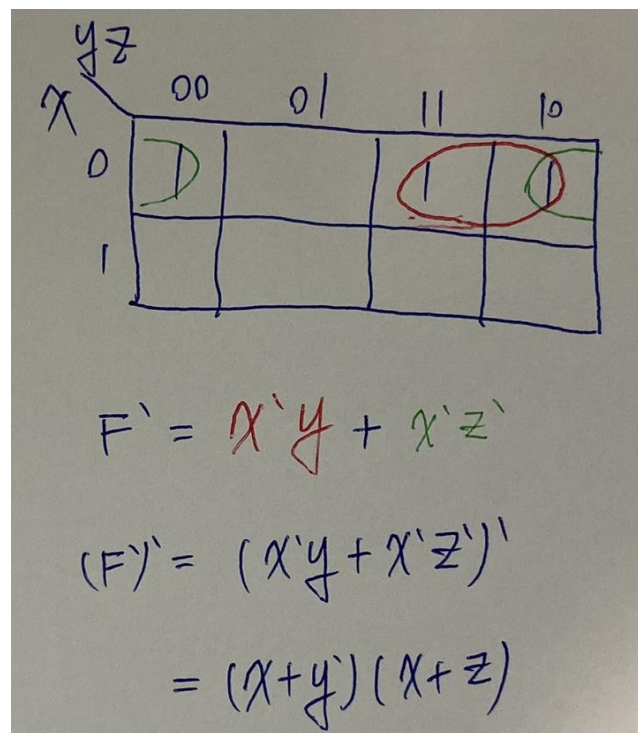 yz
x 00 01 11 10
0 1 1 1
1
F` = x`y + x`z`
(F`)` = (x`y + x`z`)'
= (x+y`)(x+z)